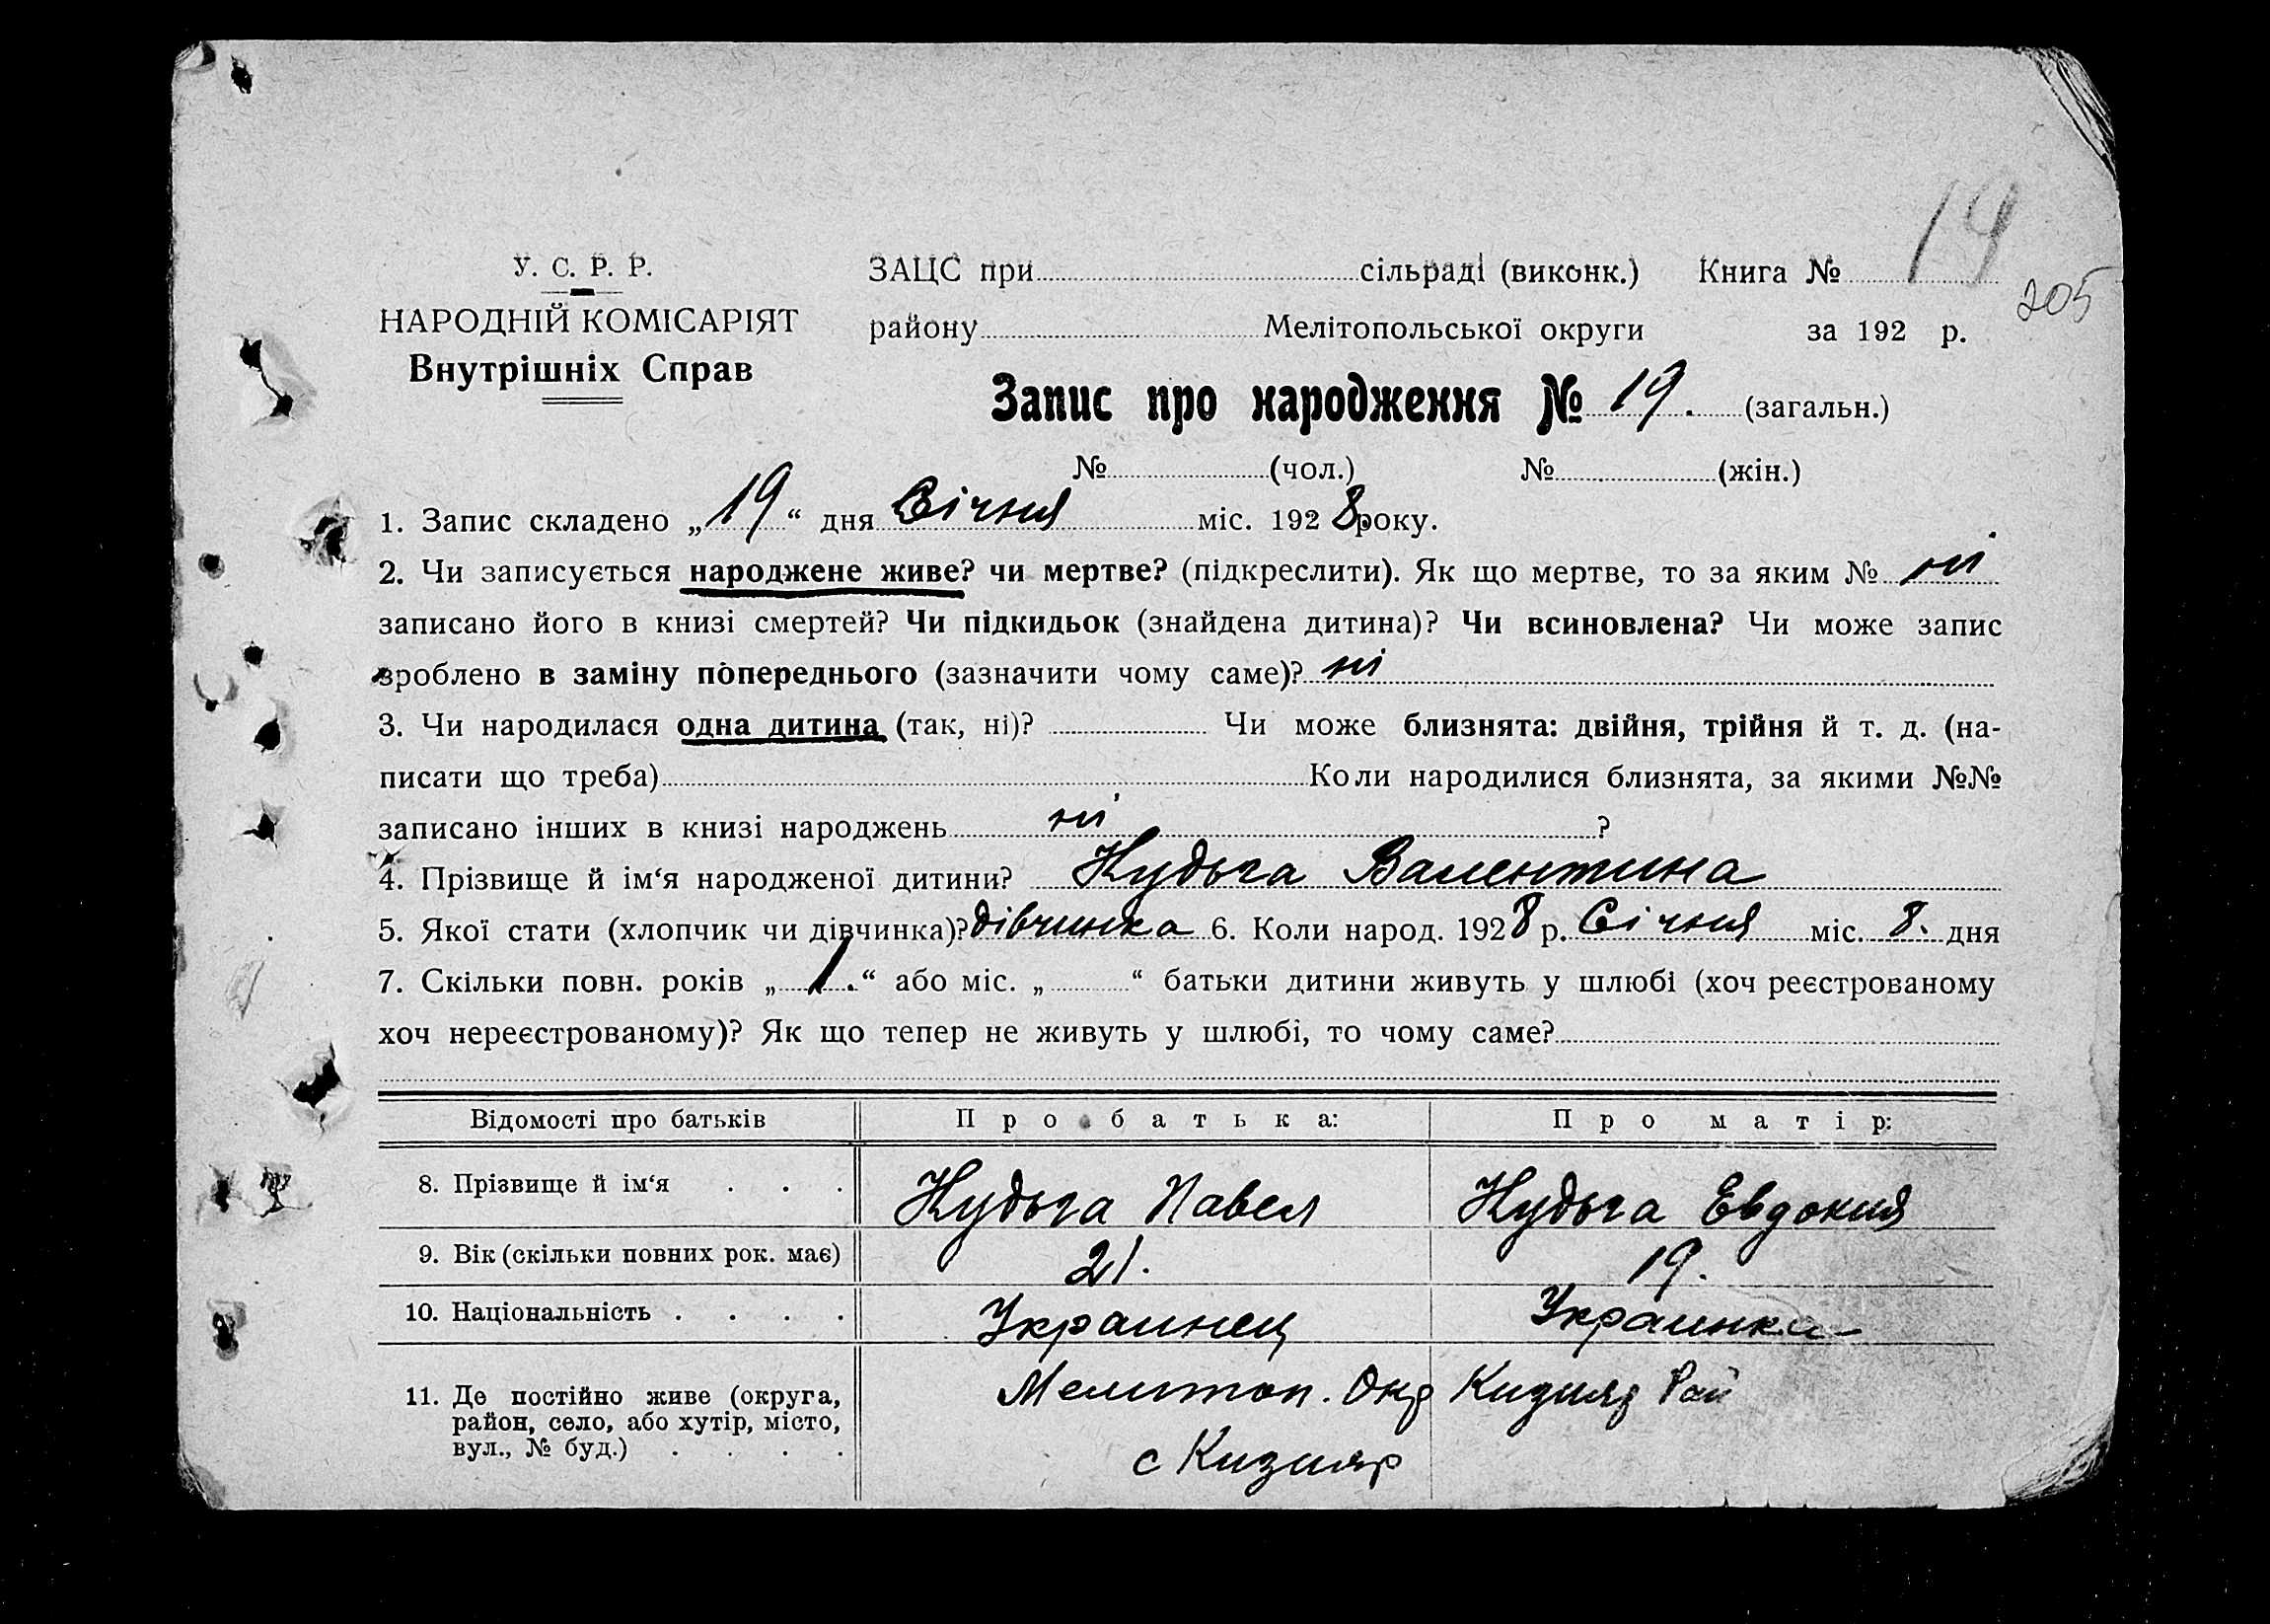 19
205
У. С. Р. Р.
НАРОДНІЙ КОМІСАРІЯТ
Внутрішніх Справ
ЗАЦС при сільраді (виконк.) Книга №
району Мелітопольської округи за 192 р.
Запис про народження № 19. (загальн.)
№ (чол.) № (жін.)
1. Запис складено „19“ дня Січня міс. 1928 року.
2. Чи записується народжене живе? чи мертве? (підкреслити). Як що мертве, то за яким № ні
записано його в книзі смертей? Чи підкидьок (знайдена дитина)? Чи всиновлена? Чи може запис
зроблено в заміну попереднього (зазначити чому саме)? ні
3. Чи народилася одна дитина (так, ні)? Чи може близнята: двійня, трійня й т. д. (на-
писати що треба) Коли народилися близнята, за якими №№
записано інших в книзі народжень ні ?
4. Прізвище й ім‘я народженої дитини? Нудьга Валентина
5. Якої стати (хлопчик чи дівчинка)? дівчинка 6. Коли народ. 1928 р. Січня міс. 8. дня
7. Скільки повн. років „1.“ або міс. „ “ батьки дитини живуть у шлюбі (хоч реєстрованому
хоч нереєстрованому)? Як що тепер не живуть у шлюбі, то чому саме?
Відомості про батьків Про батька: Про матір:
8. Прізвище й ім‘я . . . Нудьга Павел Нудьга Евдокия
9. Вік (скільки повних рок. має) 21. 19.
10. Національність . . . . Украинец Украинка
11. Де постійно живе (округа, Мелитоп. Окр Кизияр Рай
район, село, або хутір, місто,
вул., № буд.) . . . . с Кизияр